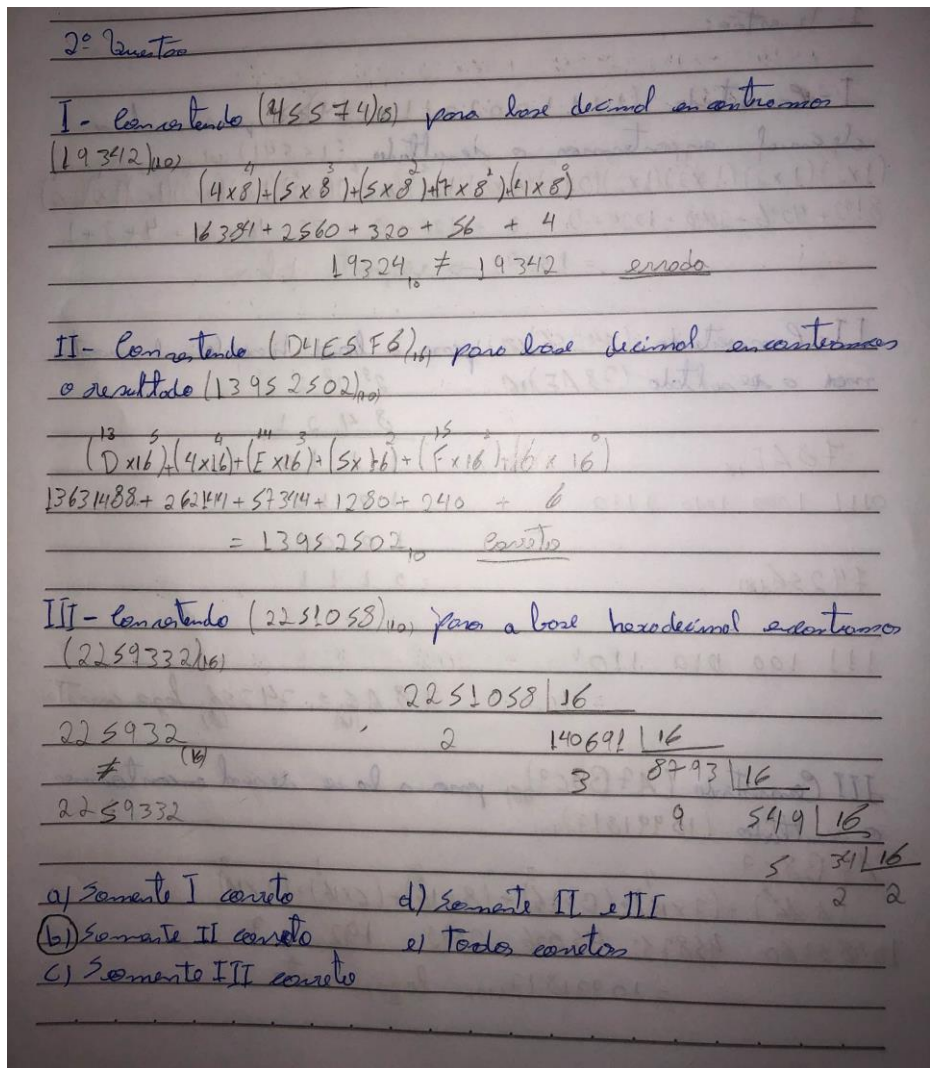 2º Questão
I - Convertendo (45574)(8) para base decimal encontramos
(19342)(10)
(4x8⁴)+(5x8³)+(5x8²)+(7x8¹)+(4x8⁰)
16384 + 2560 + 320 + 56 + 4
19324₁₀ ≠ 19342 errado
II- Convertendo (D4E5F6)(16) para base decimal encontramos
o resultado (13952502)(10)
13 5 4 14 3 2 15 0
(Dx16)+(4x16)+(Ex16)+(5x16)+(Fx16)+(6x16)
13631488+262144+57344+1280+240 + 6
= 13952502₁₀ Correto
III- Convertendo (2251058)(10) para a base hexadecimal encontramos
(2259332)(16)
2251058 |16
225932 (16) 2 140691 |16
≠ 3 8793 |16
2259332 9 549 |16
5 34 |16
2 2
a) Somente I correto d) Somente II e III
b) Somente II correto e) Todos corretos
c) Somente III correto